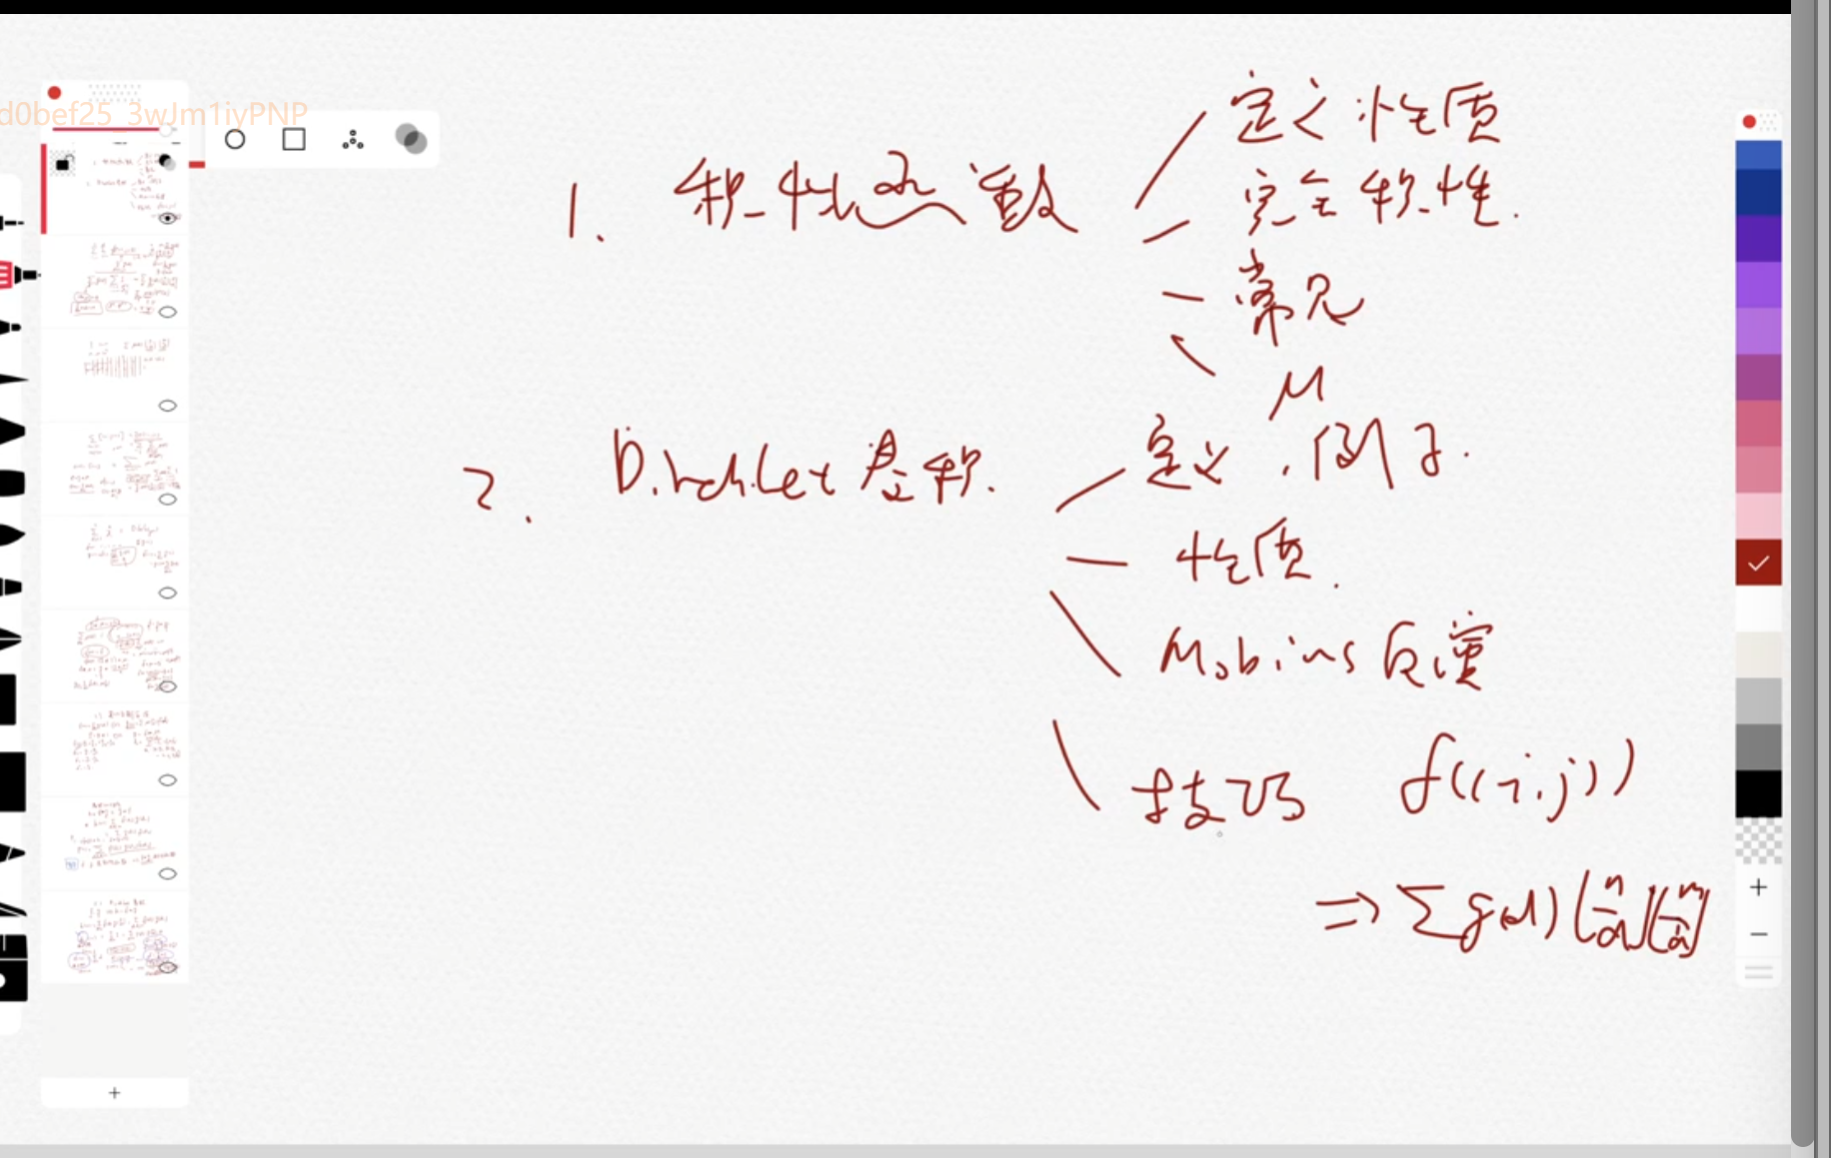 d0bef25_3wJm1iyPNP
1. 积性函数
定义 性质
完全积性.
常见
μ
2. Dirichlet 卷积.
定义, 例子.
性质.
Mobius 反演
技巧 f((i,j))
⇒ Σg(d) [n/d][m/d]